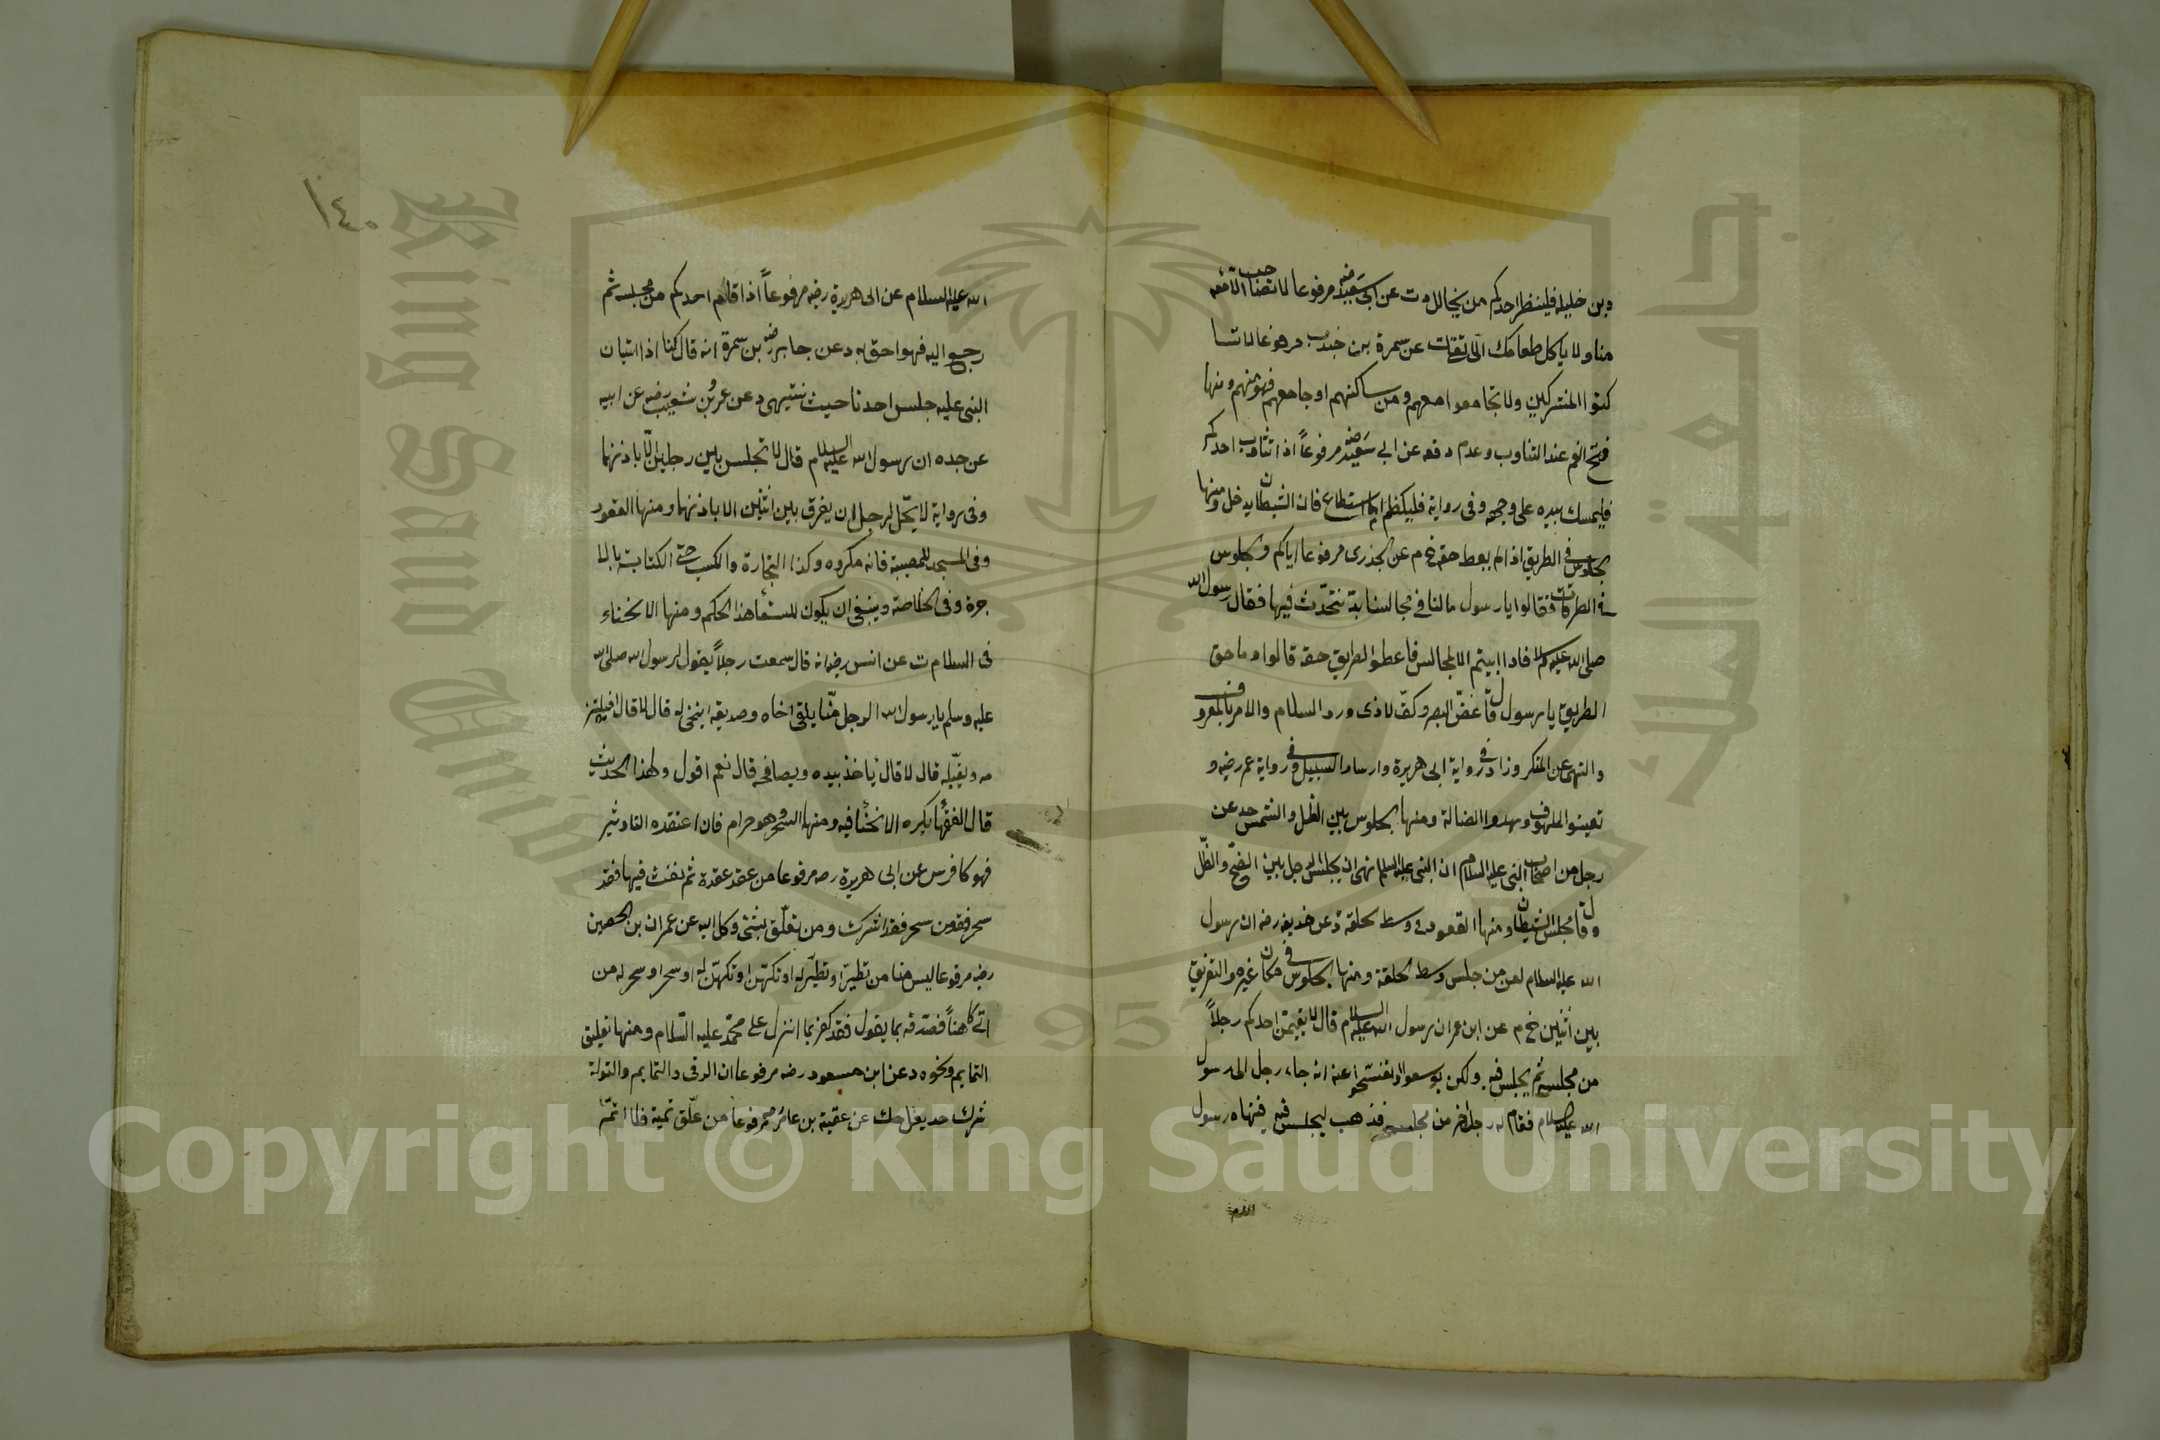 دين خليله فلينظر احدكم من يخالل د ت عن ابي سعيد رضه مرفوعا لا تصاحب الا مؤمنا
منا ولا يأكل طعامك الا تقي ت عن سمرة بن جندب مرفوعا لا تسا
كنوا المشركين ولا تجامعوا معهم ومن ساكنهم او جامعهم فهو منهم ومنها
فتح الفم عند التثاوب وعدم دفعه عن ابي سعيد رضه مرفوعاً اذا تثاوب احدكم
فليمسك بيده على وجهه وفى رواية فليكظم ما استطاع فان الشيطان يدخل ومنها
الجلوس في الطريق اذا لم يعط حقه خ م عن الخدرى مرفوعا اياكم والجلوس
في الطرقات فقالوا يا رسول مالنا فى مجالسنا بد نتحدّث فيها فقال رسول الله
صلى الله عليه وسلم فاذا ابيتم الا المجالس فاعطوا الطريق حقه قالوا وما حق
الطريق يا رسول قال غضّ البصر وكفّ الاذى ورد السلام والامر بالمعروف
والنهى عن المنكر وزاد في رواية ابى هريرة وارشاد السبيل وفي رواية عمر رضه و
تعينوا الملهوف وتهدوا الضالة ومنها الجلوس بين الظل والشمس حد عن
رجل من اصحاب النبى عليه السلام ان النبى عليه السلم نهى ان يجلس الرجل بين الضحّ والظّل
وقال مجلس الشيطان ومنها القعود فى وسط الحلقة د عن حذيفه رضه ان رسول
الله عليه السلام لعن من جلس وسط الحلقة ومنها الجلوس في مكان غيره والتفريق
بين اثنين خ م عن ابن عمر ان رسول الله عليه السلام قال لا يقيمنّ احدكم رجلاً
من مجلسه ثم يجلس فيه ولكن توسعوا وتفسحوا وعنه انه جاء رجل الى رسول
الله عليه السلام فقام له رجل اخر من مجلسه فذهب ليجلس فيه فنهاه رسول
الله م
١٤٠
الله عليه السلام عن ابى هريرة رضه مرفوعاً اذا قام احدكم من مجلسه ثم
رجع اليه فهو احق به د عن جابر رضه بن سمرة انه قال كنا اذا اتينا
النبى عليه جلس احدنا حيث ينتهى د عن عمرو بن شعيب رضه عن ابيه
عن جده ان رسول الله عليه السلام قال لا تجلس بين رجلين الّا باذنهما
وفى رواية لا يحّل لرجل ان يفرق بين اثنين الا باذنهما ومنها القعود
وفى المسجد للمصيبة فانه مكروه وكذا التجارة والكسب حتى الكتابة بالا
جرة وفى الخلاصة وينبغى ان يكون للسقأ هذا الحكم ومنها الانحناء
فى السلام ت عن انس رضه انه قال سمعت رجلاً يقول لرسول الله صلى الله
عليه وسلم يا رسول الله الرجل منّا يلقى اخاه وصديقه اينحنى له قال لا قال افيلتز
مه ويقبّله قال لا قال يأخذ بيده ويصافحه قال نعم اقول ولهذا الحديث
قال الفقهأ يكره الانحنأ فيه ومنها السحر وهو حرام فان اعتقده التاثير
فهو كافر س عن ابى هريرة رضه مرفوعا من عقد عقدة ثم نفث فيها فقد
سحر فقد ومن سحر فقد اشرك ومن تعلّق بشئ وكل اليه عن عمران بن الحصين
رضه مرفوعا ليس منا من تطيّر او تطيّر له او تكهّن او تكهّن له او سحر او سحر له من
اتى كاهناً فصدقه بما يقول فقد كفر بما انزل على محمّد عليه السّلام ومنها تعليق
التمايم ونحوه د عن ابن مسعود رضه مرفوعا ان الرقى والتمايم والتولة
شرك حد يعلى حك عن عقبة بن عامر مرفوعا من علّق تميمة فلا اتمّ
Copyright © King Saud University